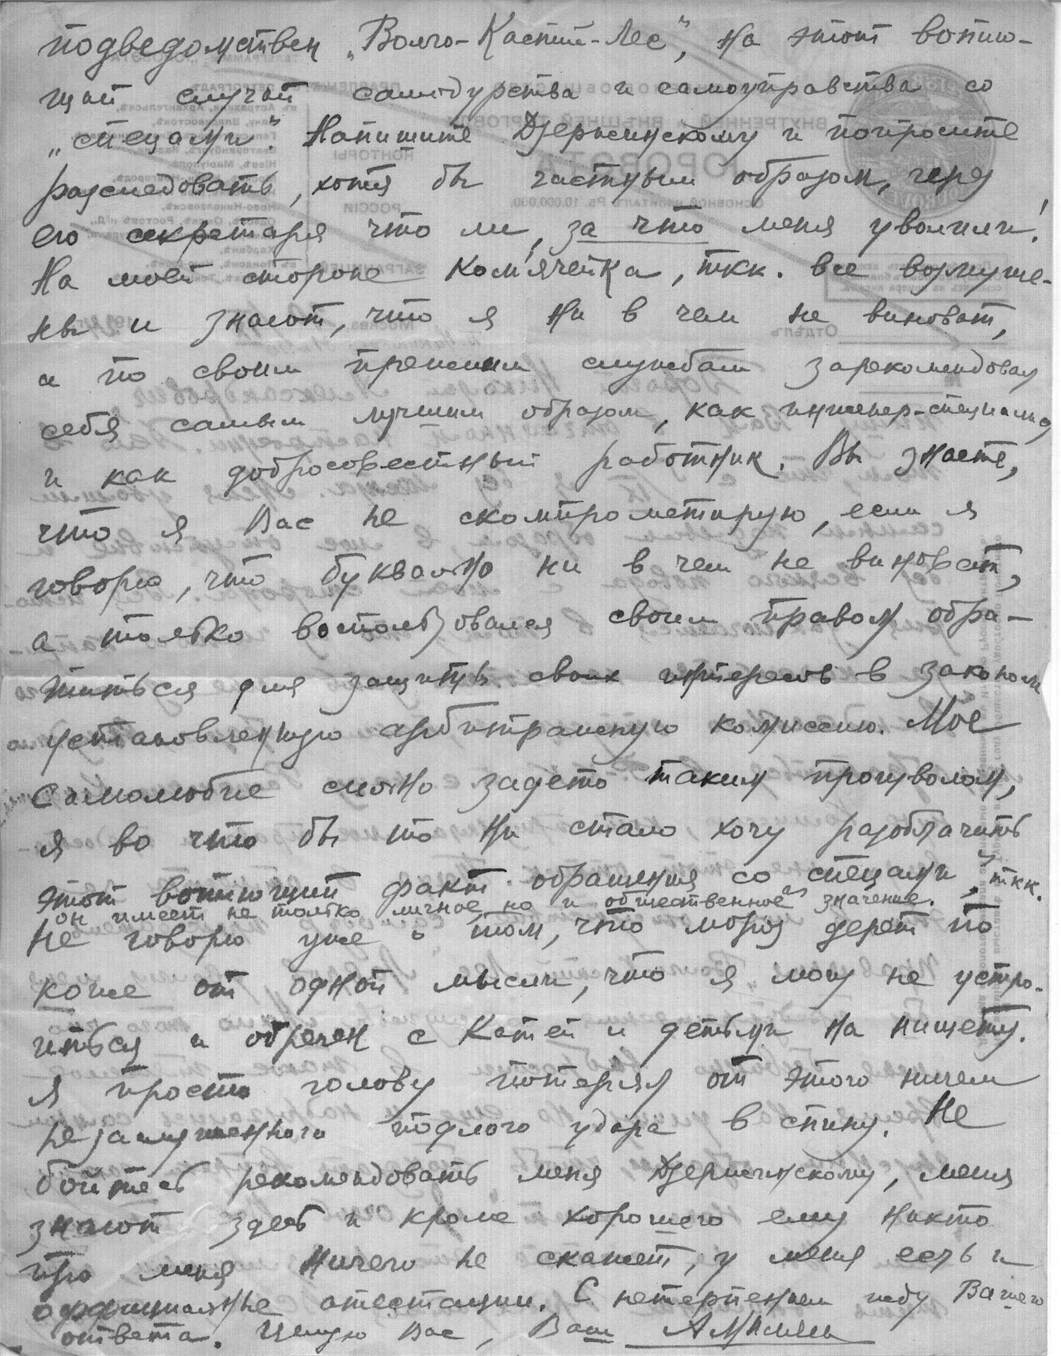 подведомствен „Волго-Каспий-Лес“, на этот вопию-
щий случай самодурства и самоуправства со
„спецами“. Напишите Дзержинскому и попросите
расследовать, хотя бы частным образом, через
его секретаря что ли, за что меня уволили!
На моей стороне Ком'ячейка, ткк. все возмуще-
ны и знают, что я ни в чем не виноват,
а по своим прежним службам зарекомендовал
себя самым лучшим образом, как инженер-специалист
и как добросовестный работник. Вы знаете,
что я Вас не скомпрометирую, если я
говорю, что буквально ни в чем не виноват,
а только воспользовался своим правом обра-
титься для защиты своих интересов в законом
установленную арбитражную комиссию. Мое
Самолюбие сильно задето таким произволом,
я во что бы то ни стало хочу разоблачить
этот вопиющий факт обращения со спецами“, ткк.
он имеет не только личное но и общественное значение.
Не говорю уже о том, что мороз дерет по
коже от одной мысли, что я могу не устро-
иться и обречен с Катей и детьми на нищету.
Я просто голову потерял от этого ничем
незаслуженного подлого удара в спину. Не
бойтесь рекомендовать меня Дзержинскому, меня
знают здесь и кроме хорошего ему никто
про меня ничего не скажет, у меня есть и
оффициальные аттестации. С нетерпением жду Вашего
ответа. Целую Вас, Ваш